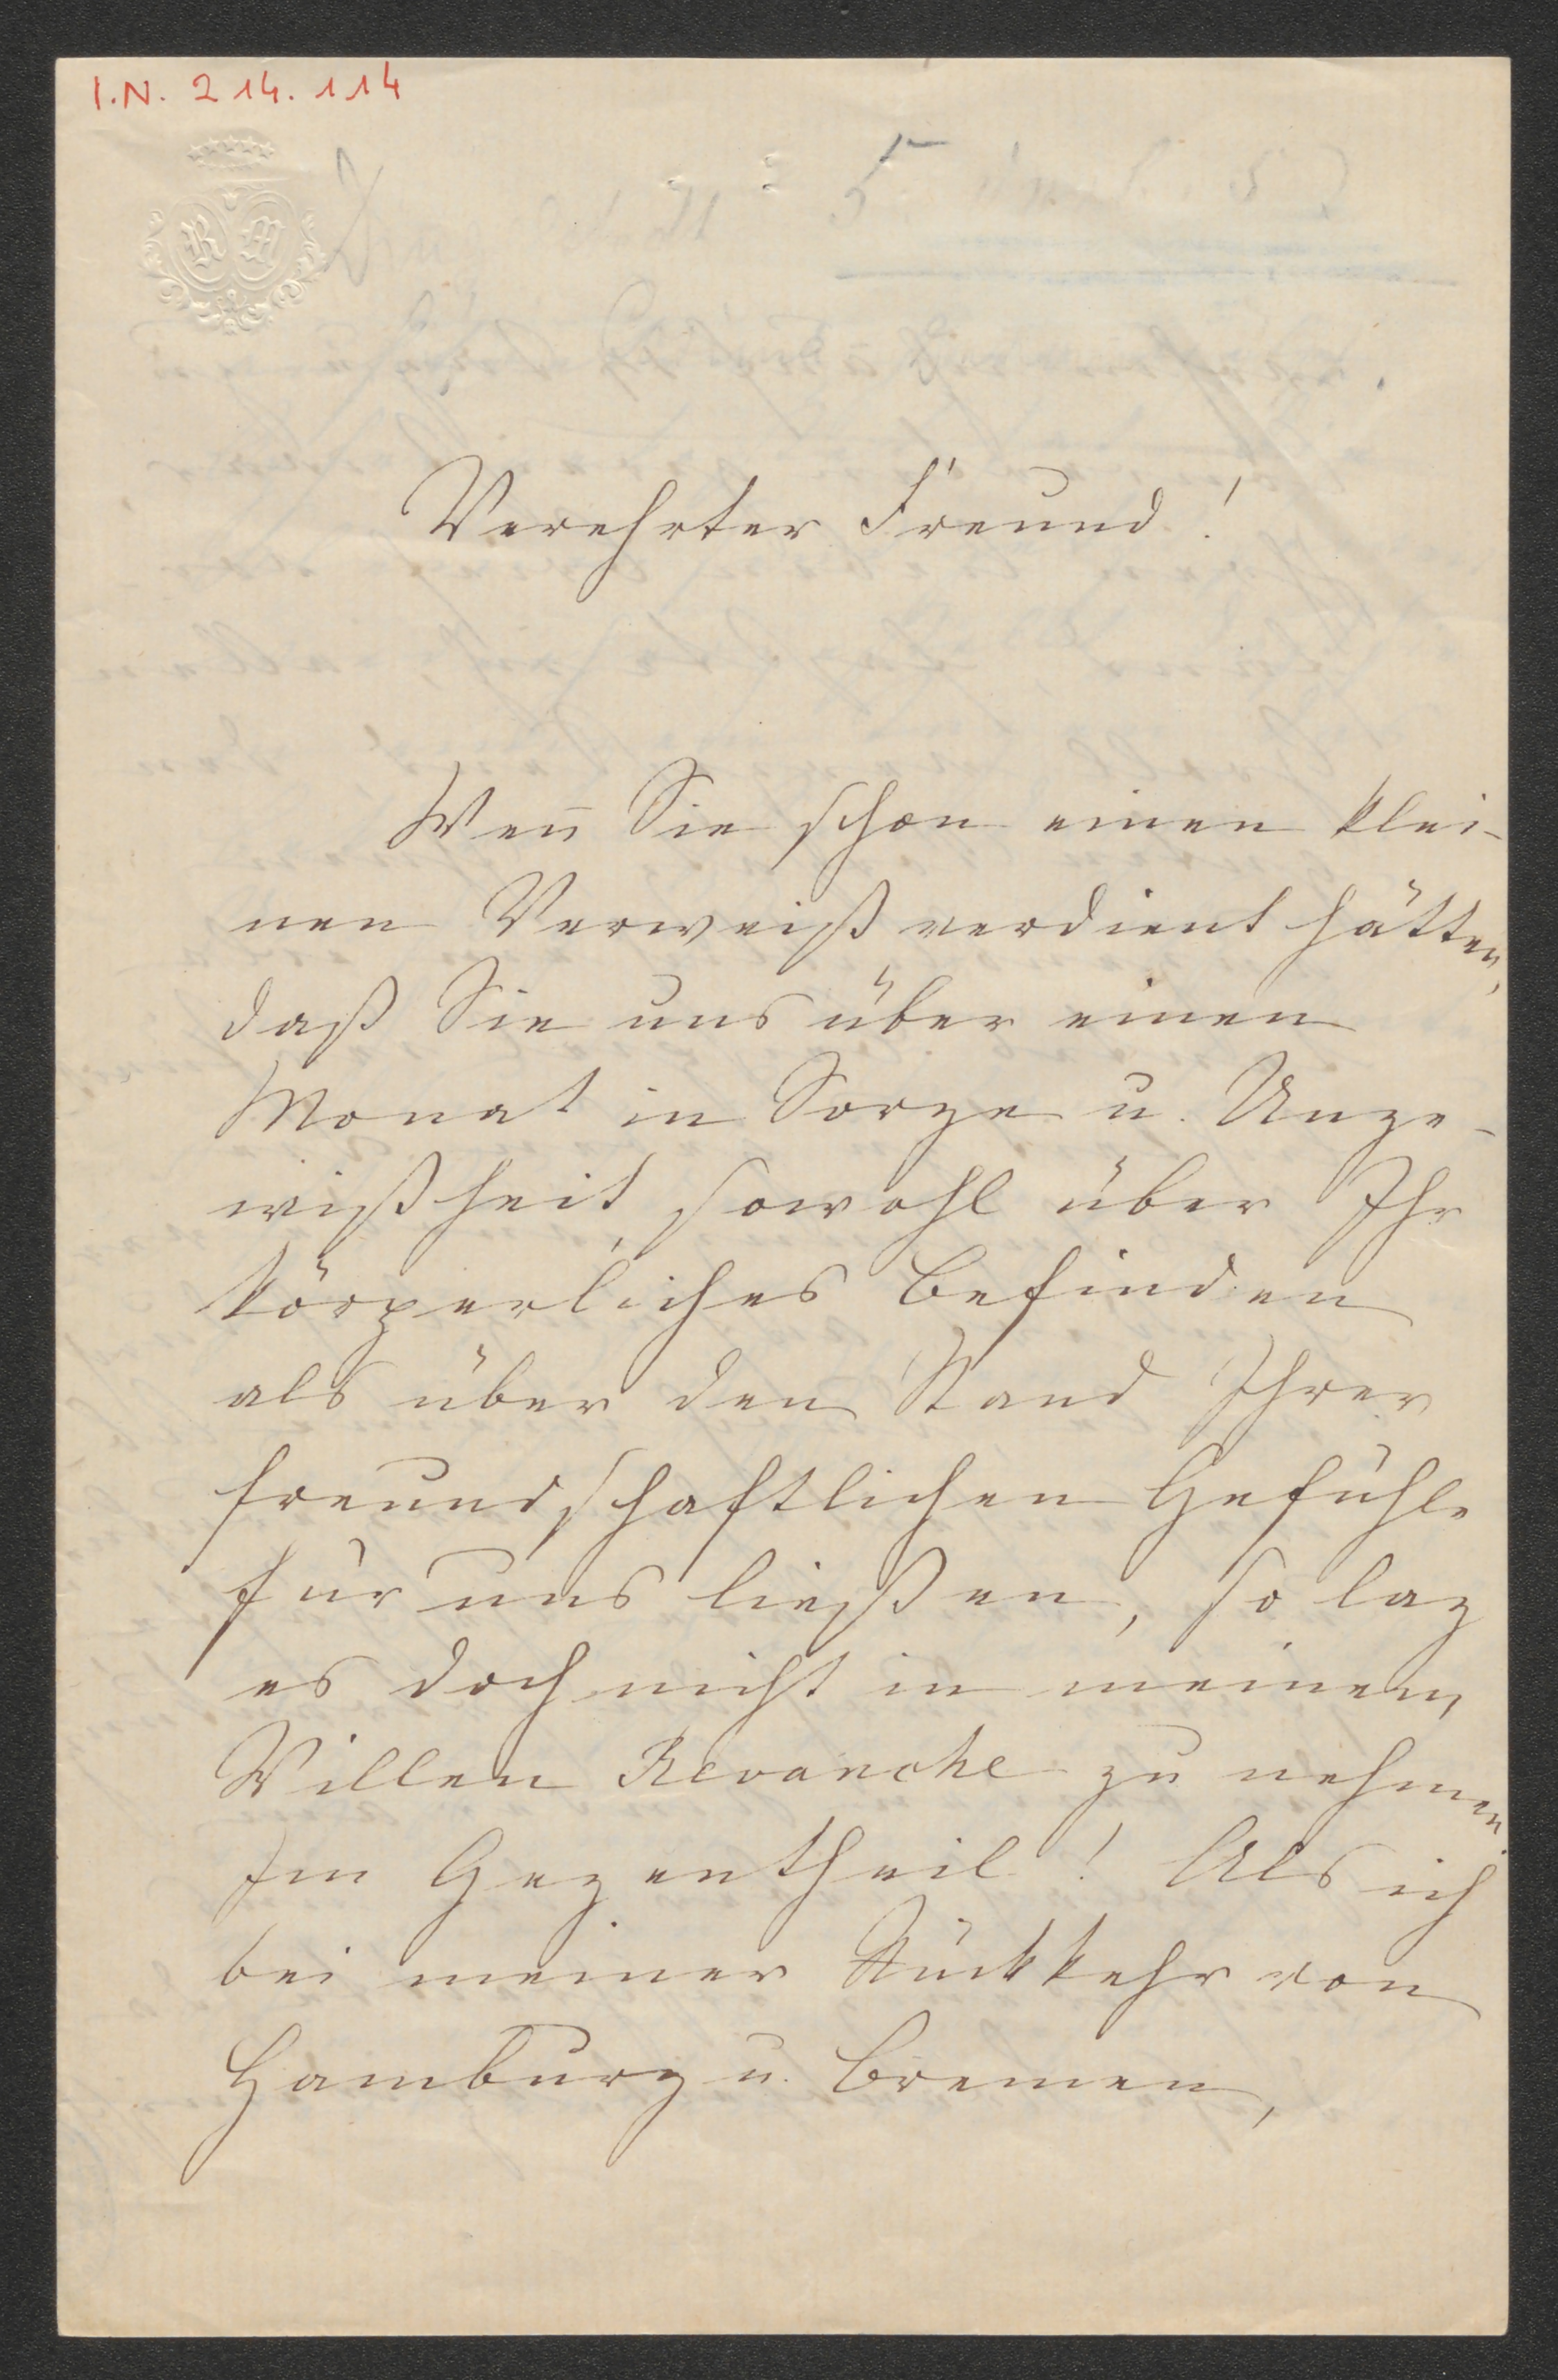 I.N. 214.114
R H
5
Verehrter Freund!
Wen̄ Sie schon einen klei-
nen Verweiß verdient hätten,
daß Sie uns über einen
Monat in Sorge u. Unge-
wißheit, sowohl über Ihr
körperliches Befinden
als über den Stand Ihrer
freundschaftlichen Gefühle
für uns ließen, so lag
es doch nicht in meinem
Willen Revanche zu nehmen.
Im Gegentheil! Als ich
bei meiner Rückkehr von
Hamburg u. Bremen,